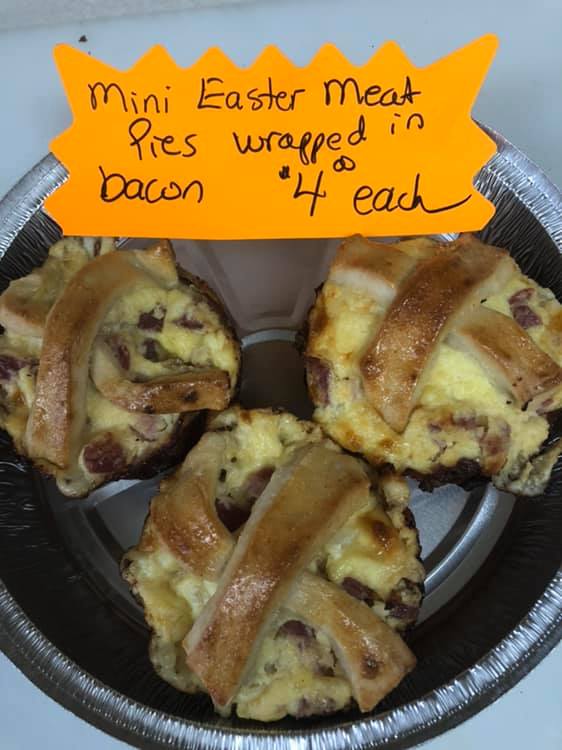 Mini Easter Meat
Pies wrapped in
bacon $4.00 each